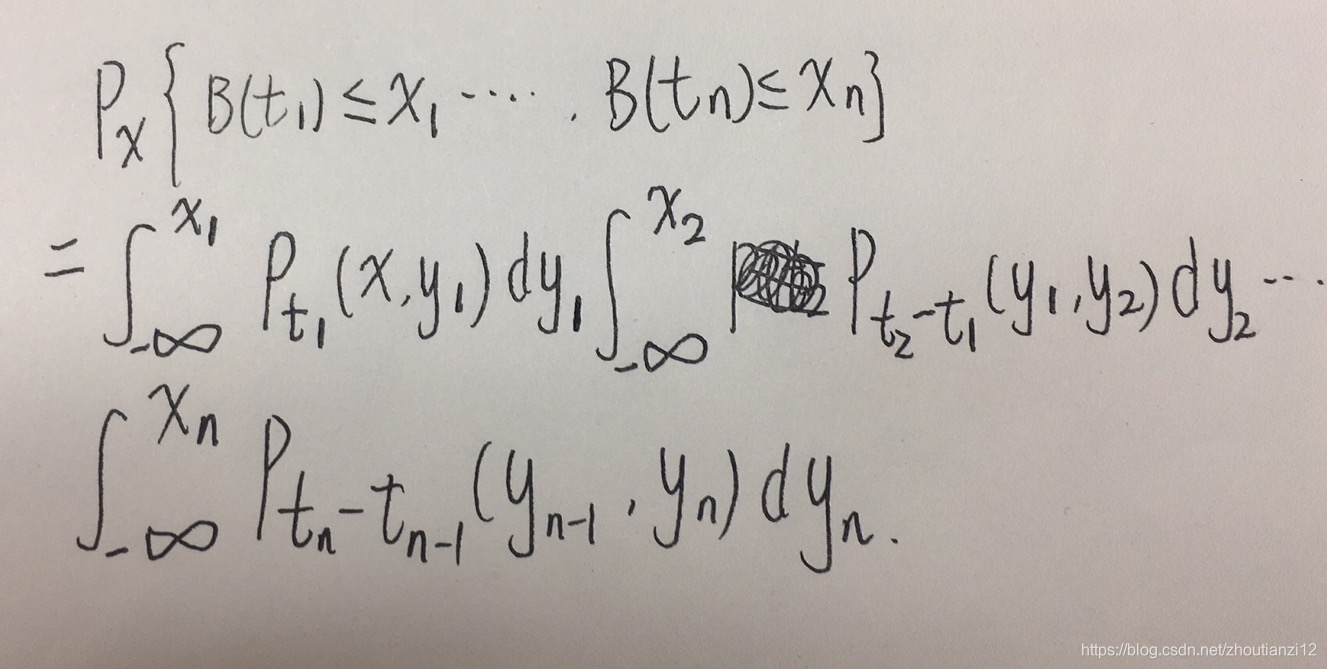 P_x { B(t_1) ≤ x_1 ····. B(t_n) ≤ x_n }
= ∫_{-∞}^{x_1} P_{t_1}(x,y_1) dy_1 ∫_{-∞}^{x_2} P_{t_2-t_1}(y_1,y_2) dy_2 ···
∫_{-∞}^{x_n} P_{t_n-t_{n-1}}(y_{n-1},y_n) dy_n.
https://blog.csdn.net/zhoutianzi12